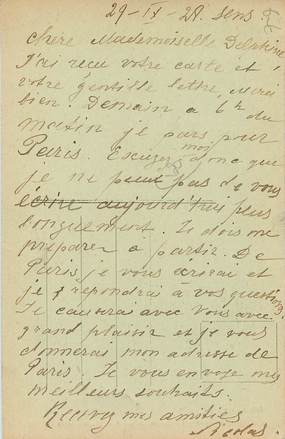 29-IX-28. Sens.
Chère Mademoiselle
J'ai reçu votre carte et
votre gentille lettre, Merci
bien. Demain a 6h du
matin je pars pour
Paris. Excusez moi donc que
je ne peux pas de vous
écrire aujourd'hui plus
longuement. Je dois me
preparer a partir. De
Paris je vous écrirai et
je repondrai à vos questions
Je causerai avec vous avec
grand plaisir et je vous
donnerai mon adresse de
Paris. Je vous envoye mes
meilleurs souhaits.
Recevez mes amitiés
Nicolas.